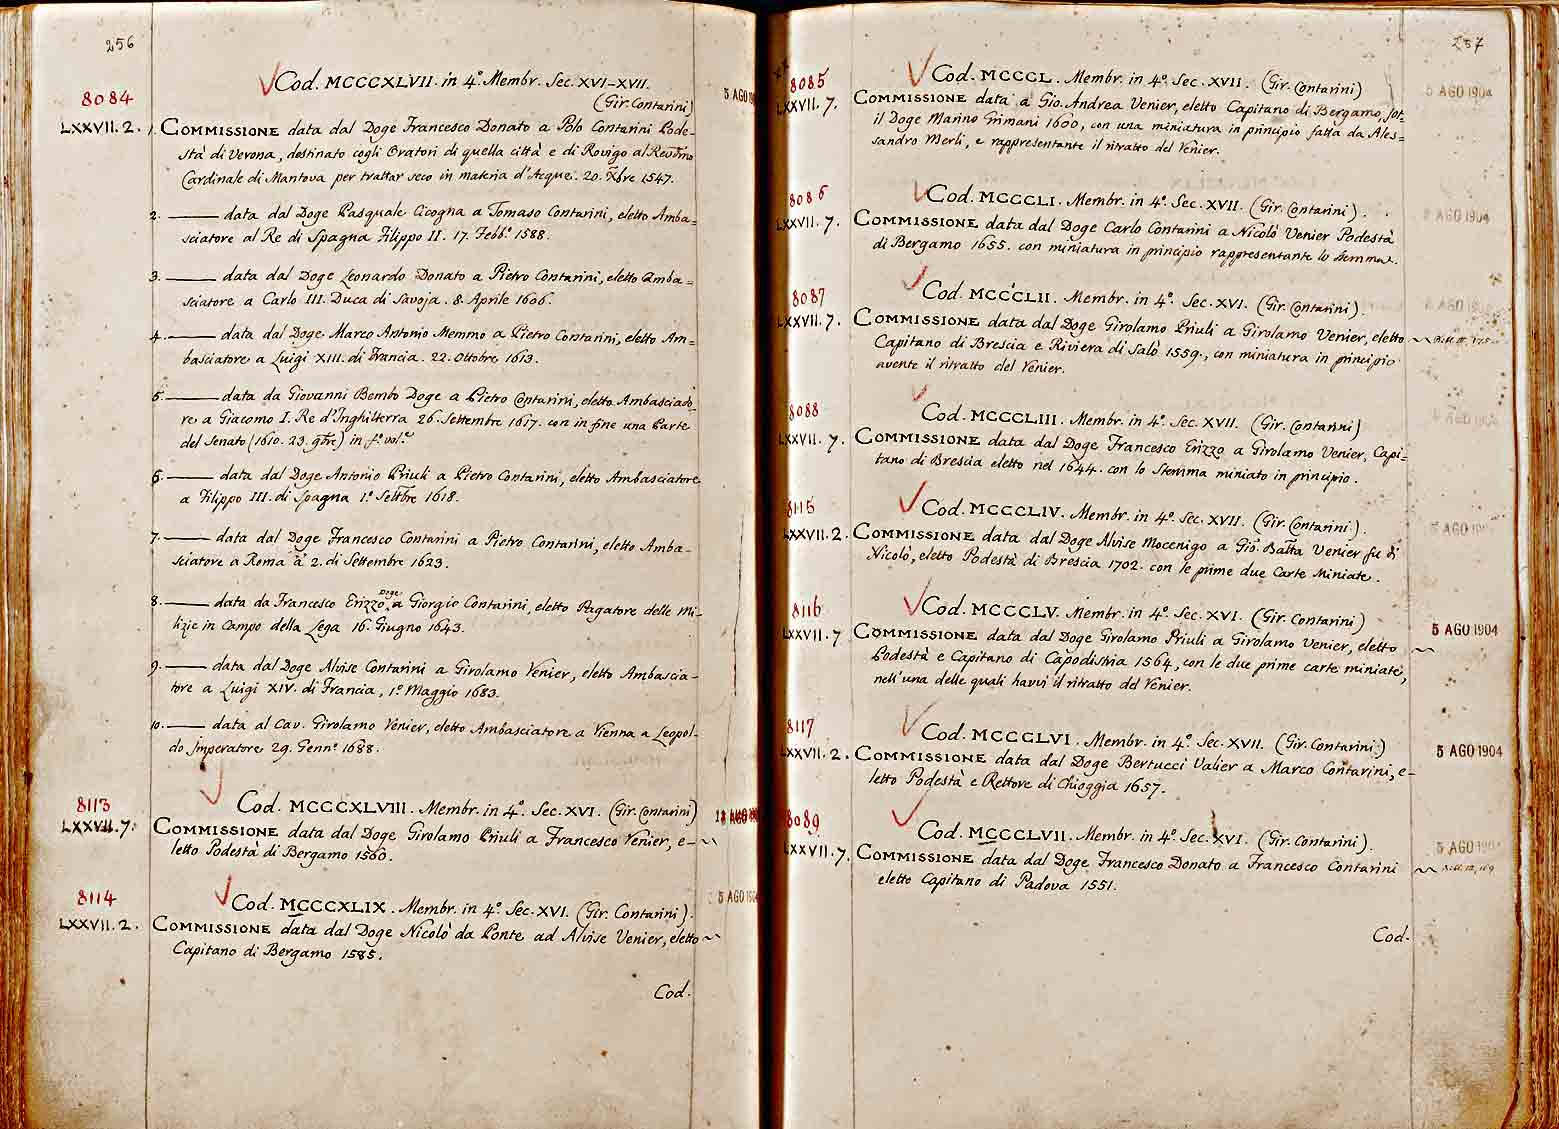 256
Cod. MCCCXLVII. in 4º. Membr. Sec. XVI-XVII.
(Gir. Contarini)
8084
5 AGO
LXXVII. 2.
1. COMMISSIONE data dal Doge Francesco Donato a Polo Contarini Pode=
stà di Verona, destinato cogli Oratori di quella città e di Rovigo al Revd̃mo
Cardinale di Mantova per trattar seco in materia d'Acque. 20. Xbre 1547.
2. ——— data dal Doge Pasquale Cicogna a Tomaso Contarini, eletto Amba=
sciatore al Re di Spagna Filippo II. 17. Febbº. 1588.
3. ——— data dal Doge Leonardo Donato a Pietro Contarini, eletto Amba=
sciatore a Carlo III. Duca di Savoja. 8. Aprile 1606.
4. ——— data dal Doge Marco Antonio Memmo a Pietro Contarini, eletto Am=
basciatore a Luigi XIII. di Francia. 22. Ottobre 1613.
5. ——— data da Giovanni Bembo Doge a Pietro Contarini, eletto Ambasciado=
re a Giacomo I. Re d'Inghilterra 26. Settembre 1617. con in fine una Parte
del Senato (1610. 23. 9bre) in fº. volº.
6. ——— data dal Doge Antonio Priuli a Pietro Contarini, eletto Ambasciatore
a Filippo III. di Spagna 1º. Settbre 1618.
7. ——— data dal Doge Francesco Contarini a Pietro Contarini, eletto Amba-
sciatore a Roma a' 2. di Settembre 1623.
8. ——— data da Francesco Erizzo Doge, a Giorgio Contarini, eletto Pagatore delle Mi-
lizie in Campo della Lega 16. Giugno 1643.
9. ——— data dal Doge Alvise Contarini a Girolamo Venier, eletto Ambascia-
tore a Luigi XIV. di Francia, 1º. Maggio 1683.
10. ——— data al Cav. Girolamo Venier, eletto Ambasciatore a Vienna a Leopol-
do Imperatore 29. Gennº. 1688.
8113
Cod. MCCCXLVIII. Membr. in 4º. Sec. XVI. (Gir. Contarini)
LXXVII. 7.
COMMISSIONE data dal Doge Girolamo Priuli a Francesco Venier, e-
letto Podestà di Bergamo 1560.
8114
Cod. MCCCXLIX. Membr. in 4º. Sec. XVI. (Gir. Contarini).
5 AGO
LXXVII. 2.
COMMISSIONE data dal Doge Nicolò da Ponte ad Alvise Venier, eletto
Capitano di Bergamo 1585.
Cod.
257
8085
Cod. MCCCL. Membr. in 4º. Sec. XVII. (Gir. Contarini)
5 AGO 1904
LXXVII. 7.
COMMISSIONE data a Gio. Andrea Venier, eletto Capitano di Bergamo, sot=
il Doge Marino Grimani 1600, con una miniatura in principio fatta da Ales=
sandro Merli, e rappresentante il ritratto del Venier.
8086
Cod. MCCCLI. Membr. in 4º. Sec. XVII. (Gir. Contarini).
5 AGO 1904
LXXVII. 7.
COMMISSIONE data dal Doge Carlo Contarini a Nicolò Venier Podestà
di Bergamo 1655. con miniatura in principio rappresentante lo Stemma.
8087
Cod. MCCCLII. Membr. in 4º. Sec. XVI. (Gir. Contarini).
5 AGO
LXXVII. 7.
COMMISSIONE data dal Doge Girolamo Priuli a Girolamo Venier, eletto
Capitano di Brescia e Riviera di Salò 1559., con miniatura in principio
avente il ritratto del Venier.
8088
Cod. MCCCLIII. Membr. in 4º. Sec. XVII. (Gir. Contarini)
LXXVII. 7.
COMMISSIONE data dal Doge Francesco Erizzo a Girolamo Venier, Capi=
tano di Brescia eletto nel 1644. con lo Stemma miniato in principio.
8115
Cod. MCCCLIV. Membr. in 4º. Sec. XVII. (Gir. Contarini).
5 AGO
LXXVII. 2.
COMMISSIONE data dal Doge Alvise Mocenigo a Gio. Batta Venier fu di
Nicolò, eletto Podestà di Brescia 1702. con le prime due Carte Miniate.
8116
Cod. MCCCLV. Membr. in 4º. Sec. XVI. (Gir. Contarini)
5 AGO 1904
LXXVII. 7
COMMISSIONE data dal Doge Girolamo Priuli a Girolamo Venier, eletto
Podestà e Capitano di Capodistria 1564, con le due prime carte miniate,
nell'una delle quali havvi il ritratto del Venier.
8117
Cod. MCCCLVI. Membr. in 4º. Sec. XVII. (Gir. Contarini)
5 AGO 1904
LXXVII. 2.
COMMISSIONE data dal Doge Bertucci Valier a Marco Contarini, e-
letto Podestà e Rettore di Chioggia 1657.
8089
Cod. MCCCLVII. Membr. in 4º. Sec. XVI. (Gir. Contarini).
5 AGO
LXXVII. 7.
COMMISSIONE data dal Doge Francesco Donato a Francesco Contarini
eletto Capitano di Padova 1551.
Cod.